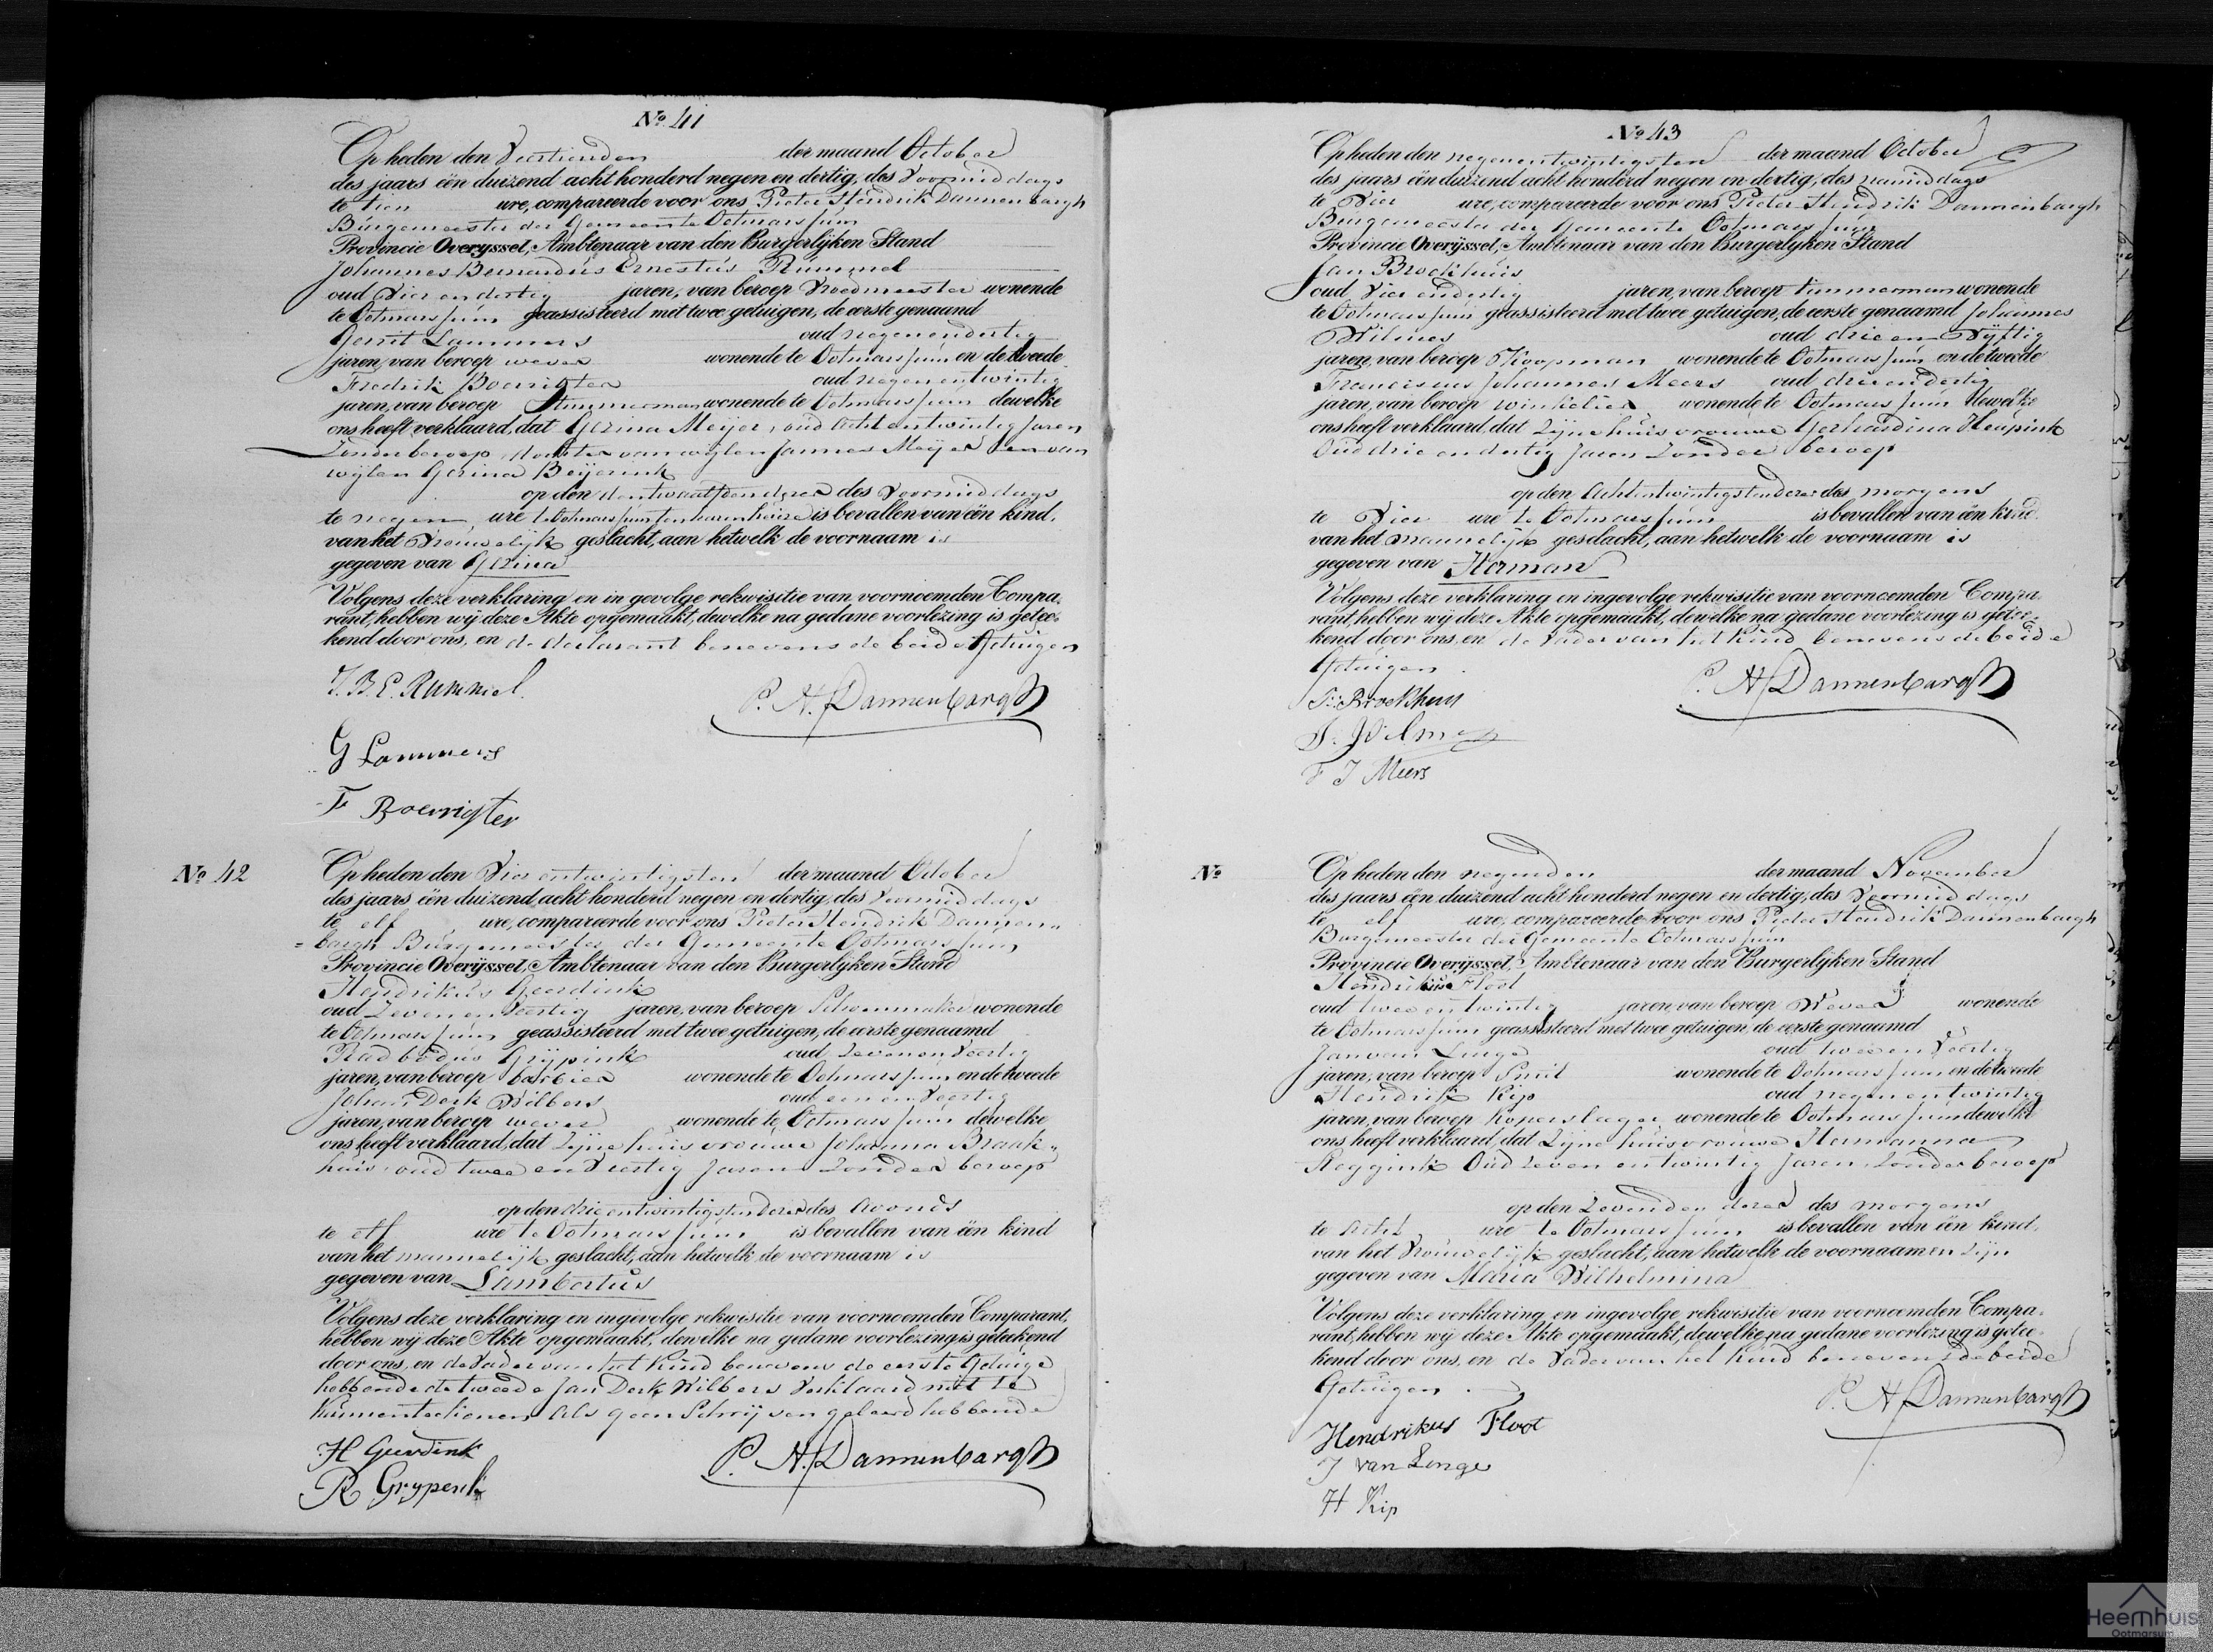 Nº 41
Op heden den Veertienden der maand October
des jaars één duizend acht honderd negen en dertig, des Voormiddags
te tien ure, compareerde voor ons Pieter Hendrik Dannenbargh
Burgemeester der Gemeente Ootmarssum
Provincie Overijssel, Ambtenaar van den Burgerlijken Stand
Johannes Bernardus Ernestus Rummel
oud Vier en dertig jaren, van beroep Vroedmeester wonende
te Ootmarssum geassisteerd met twee getuigen, de eerste genaamd
Gerrit Lammers oud negenendertig
jaren, van beroep wever wonende te Ootmarssum en de tweede
Fredrik Boerrigter oud negenentwintig
jaren, van beroep timmerman wonende te Ootmarssum dewelke
ons heeft verklaard, dat Gezina Meijer, oud achtentwintig Jaren
Zonder beroep, dochter van wijlen Jannes Meijer en van
wijlen Gezina Beijerink
op den twaalfden dezer des Voormiddags
te negen ure te Ootmarssum ten haren huize is bevallen van één kind,
van het Vrouwelijk geslacht, aan hetwelk de voornaam is
gegeven van Gezina
Volgens deze verklaring en in gevolge rekwisitie van voornoemden Compa-
rant, hebben wij deze Akte opgemaakt, dewelke na gedane voorlezing is getee-
kend door ons, en de declarant benevens de beide Getuigen
J. B. E. Rummel. P. H. Dannenbargh
G Lammers
F Boerrigter
Nº 42
Op heden den Vier entwintigsten der maand October
des jaars één duizend acht honderd negen en dertig, des Voormiddags
te elf ure, compareerde voor ons Pieter Hendrik Dannen"
=bargh Burgemeester der Gemeente Ootmarssum
Provincie Overijssel, Ambtenaar van den Burgerlijken Stand
Hendrikus Geerdink
oud Zeven en Veertig jaren, van beroep Schoenmaker wonende
te Ootmarssum geassisteerd met twee getuigen, de eerste genaamd
Radbodus Grijpink oud Zeven en Veertig
jaren, van beroep barbier wonende te Ootmarssum en de tweede
Johan Derk Wilbers oud een en Veertig
jaren, van beroep wever wonende te Ootmarssum dewelke
ons heeft verklaard, dat Zijne huisvrouwe Johanna Braak"
huis oud twee en Veertig Jaren Zonder beroep
op den drie entwintigsten dezer des avonds
te elf ure te Ootmarssum is bevallen van één kind
van het mannelijk geslacht, aan hetwelk de voornaam is
gegeven van Lambertus
Volgens deze verklaring en ingevolge rekwisitie van voornoemden Comparant,
hebben wij deze Akte opgemaakt, dewelke na gedane voorlezing is geteekend
door ons, en de Vader van het Kind benevens de eerste Getuige
hebbende de tweede Jan Derk Wilbers Verklaard niet te
kunnen teekenen als geen Schrijven geleerd hebbende
H Geerdink P. H. Dannenbargh
R Grypenk
Nº 43
Op heden den negenentwintigsten der maand October
des jaars één duizend acht honderd negen en dertig, des namiddags
te Vier ure, compareerde voor ons Pieter Hendrik Dannenbargh
Burgemeester der Gemeente Ootmarssum
Provincie Overijssel, Ambtenaar van den Burgerlijken Stand
Jan Brockhuis
oud Vier endertig jaren, van beroep timmerman wonende
te Ootmarssum geassisteerd met twee getuigen, de eerste genaamd Johannes
Wilmes oud drie en Vijftig
jaren, van beroep Koopman wonende te Ootmarssum en de tweede
Franciscus Johannes Meers oud drieendertig
jaren, van beroep winkelier wonende te Ootmarssum dewelke
ons heeft verklaard, dat Zijne huisvrouwe Gerhardina Heupink
Oud drie en dertig Jaren Zonder beroep
op den Achtentwintigsten dezer des morgens
te Vier ure te Ootmarssum is bevallen van één kind.
van het mannelijk geslacht, aan hetwelk de voornaam is
gegeven van Herman
Volgens deze verklaring en ingevolge rekwisitie van voornoemden Compa
rant, hebben wij deze Akte opgemaakt, dewelke na gedane voorlezing is getee-
kend door ons, en de Vader van het Kind benevens de beide
Getuigen.
J: Brockhuis P. H. Dannenbargh
J. Wilmes
F J Meers
Nº
Op heden den negenden der maand November
des jaars één duizend acht honderd negen en dertig, des Voormiddags
te elf ure, compareerde voor ons Pieter Hendrik Dannenbargh
Burgemeester der Gemeente Ootmarssum
Provincie Overijssel, Ambtenaar van den Burgerlijken Stand
Hendrikus Floot
oud twee entwintig jaren van beroep Wever wonende
te Ootmarssum geassisteerd met twee getuigen, de eerste genaamd
Jan van Linge oud twee en Veertig
jaren, van beroep Smit wonende te Ootmarssum en de tweede
Hendrik Kip oud negen entwintig
jaren, van beroep koperslager wonende te Ootmarssum dewelke
ons heeft verklaard, dat Zijne huisvrouwe Hermanna
Reggink Oud Zeven entwintig Jaren Zonder beroep
op den Zevenden dezer des morgens
te Acht ure te Ootmarssum is bevallen van één kind,
van het Vrouwelijk geslacht, aan hetwelk de voornaamen Zijn
gegeven van Maria Wilhelmina
Volgens deze verklaring en ingevolge rekwisitie van voornoemden Compa-
rant, hebben wij deze Akte opgemaakt, dewelke na gedane voorlezing is getee-
kend door ons, en de Vader van het Kind benevens de beide
Getuigen. P. H. Dannenbargh
Hendrikus Floot
J van Linge
H Kip
Heemhuis
Ootmarsum